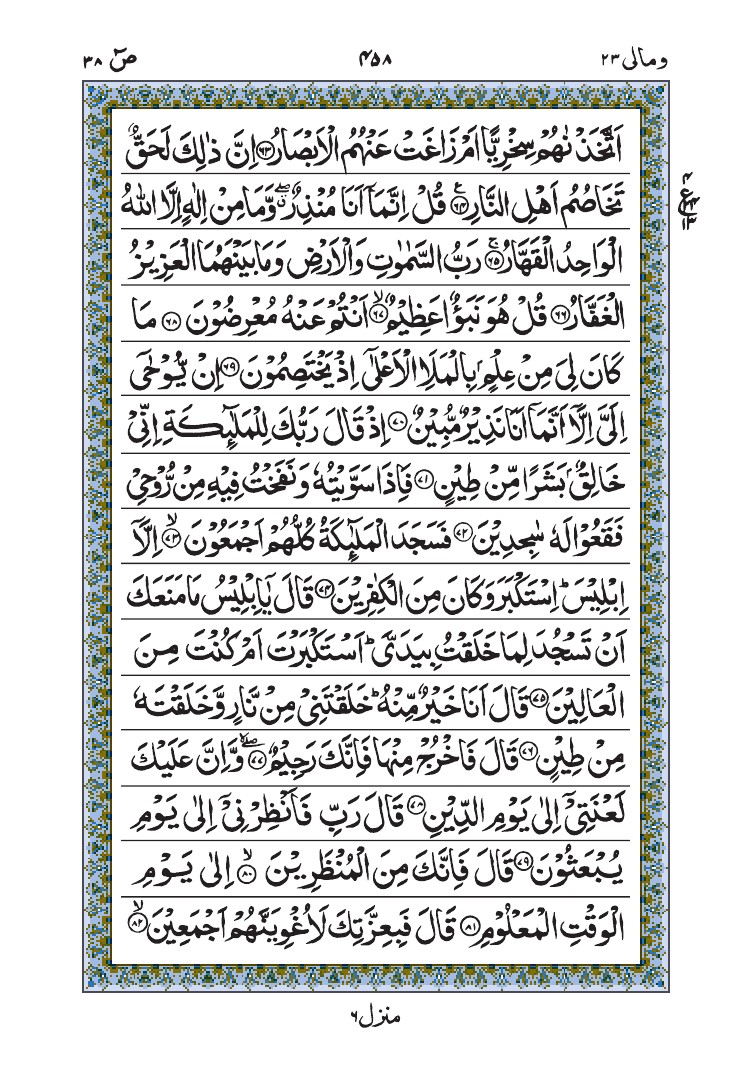 ومالی ۲۳ ۴۵۸ صٓ ۳۸
اَتَّخَذْنٰهُمْ سِخْرِيًّا اَمْ زَاغَتْ عَنْهُمُ الْاَبْصَارُ ﴿۶۳﴾ اِنَّ ذٰلِكَ لَحَقٌّ
تَخَاصُمُ اَهْلِ النَّارِ ﴿۶۴﴾ ع قُلْ اِنَّمَاۤ اَنَا مُنْذِرٌ ۖ وَّمَا مِنْ اِلٰهٍ اِلَّا اللّٰهُ
الْوَاحِدُ الْقَهَّارُ ﴿۶۵﴾ ج رَبُّ السَّمٰوٰتِ وَالْاَرْضِ وَمَا بَيْنَهُمَا الْعَزِيْزُ
الْغَفَّارُ ﴿۶۶﴾ قُلْ هُوَ نَبَؤٌا عَظِيْمٌ ﴿۶۷﴾ ۙ اَنْتُمْ عَنْهُ مُعْرِضُوْنَ ﴿۶۸﴾ مَا
كَانَ لِيَ مِنْ عِلْمٍۭ بِالْمَلَاِ الْاَعْلٰۤى اِذْ يَخْتَصِمُوْنَ ﴿۶۹﴾ اِنْ يُّوْحٰۤى
اِلَيَّ اِلَّاۤ اَنَّمَاۤ اَنَا نَذِيْرٌ مُّبِيْنٌ ﴿۷۰﴾ اِذْ قَالَ رَبُّكَ لِلْمَلٰٓئِكَةِ اِنِّيْ
خَالِقٌۢ بَشَرًا مِّنْ طِيْنٍ ﴿۷۱﴾ فَاِذَا سَوَّيْتُهٗ وَنَفَخْتُ فِيْهِ مِنْ رُّوْحِيْ
فَقَعُوْا لَهٗ سٰجِدِيْنَ ﴿۷۲﴾ فَسَجَدَ الْمَلٰٓئِكَةُ كُلُّهُمْ اَجْمَعُوْنَ ﴿۷۳﴾ ۙ اِلَّاۤ
اِبْلِيْسَ ؕ اِسْتَكْبَرَ وَكَانَ مِنَ الْكٰفِرِيْنَ ﴿۷۴﴾ قَالَ يٰۤاِبْلِيْسُ مَا مَنَعَكَ
اَنْ تَسْجُدَ لِمَا خَلَقْتُ بِيَدَيَّ ؕ اَسْتَكْبَرْتَ اَمْ كُنْتَ مِنَ
الْعَالِيْنَ ﴿۷۵﴾ قَالَ اَنَا خَيْرٌ مِّنْهُ ؕ خَلَقْتَنِيْ مِنْ نَّارٍ وَّخَلَقْتَهٗ
مِنْ طِيْنٍ ﴿۷۶﴾ قَالَ فَاخْرُجْ مِنْهَا فَاِنَّكَ رَجِيْمٌ ﴿۷۷﴾ ۖ وَّاِنَّ عَلَيْكَ
لَعْنَتِيْۤ اِلٰى يَوْمِ الدِّيْنِ ﴿۷۸﴾ قَالَ رَبِّ فَاَنْظِرْنِيْۤ اِلٰى يَوْمِ
يُبْعَثُوْنَ ﴿۷۹﴾ قَالَ فَاِنَّكَ مِنَ الْمُنْظَرِيْنَ ﴿۸۰﴾ ۙ اِلٰى يَوْمِ
الْوَقْتِ الْمَعْلُوْمِ ﴿۸۱﴾ قَالَ فَبِعِزَّتِكَ لَاُغْوِيَنَّهُمْ اَجْمَعِيْنَ ﴿۸۲﴾ ۙ
منزل ۶